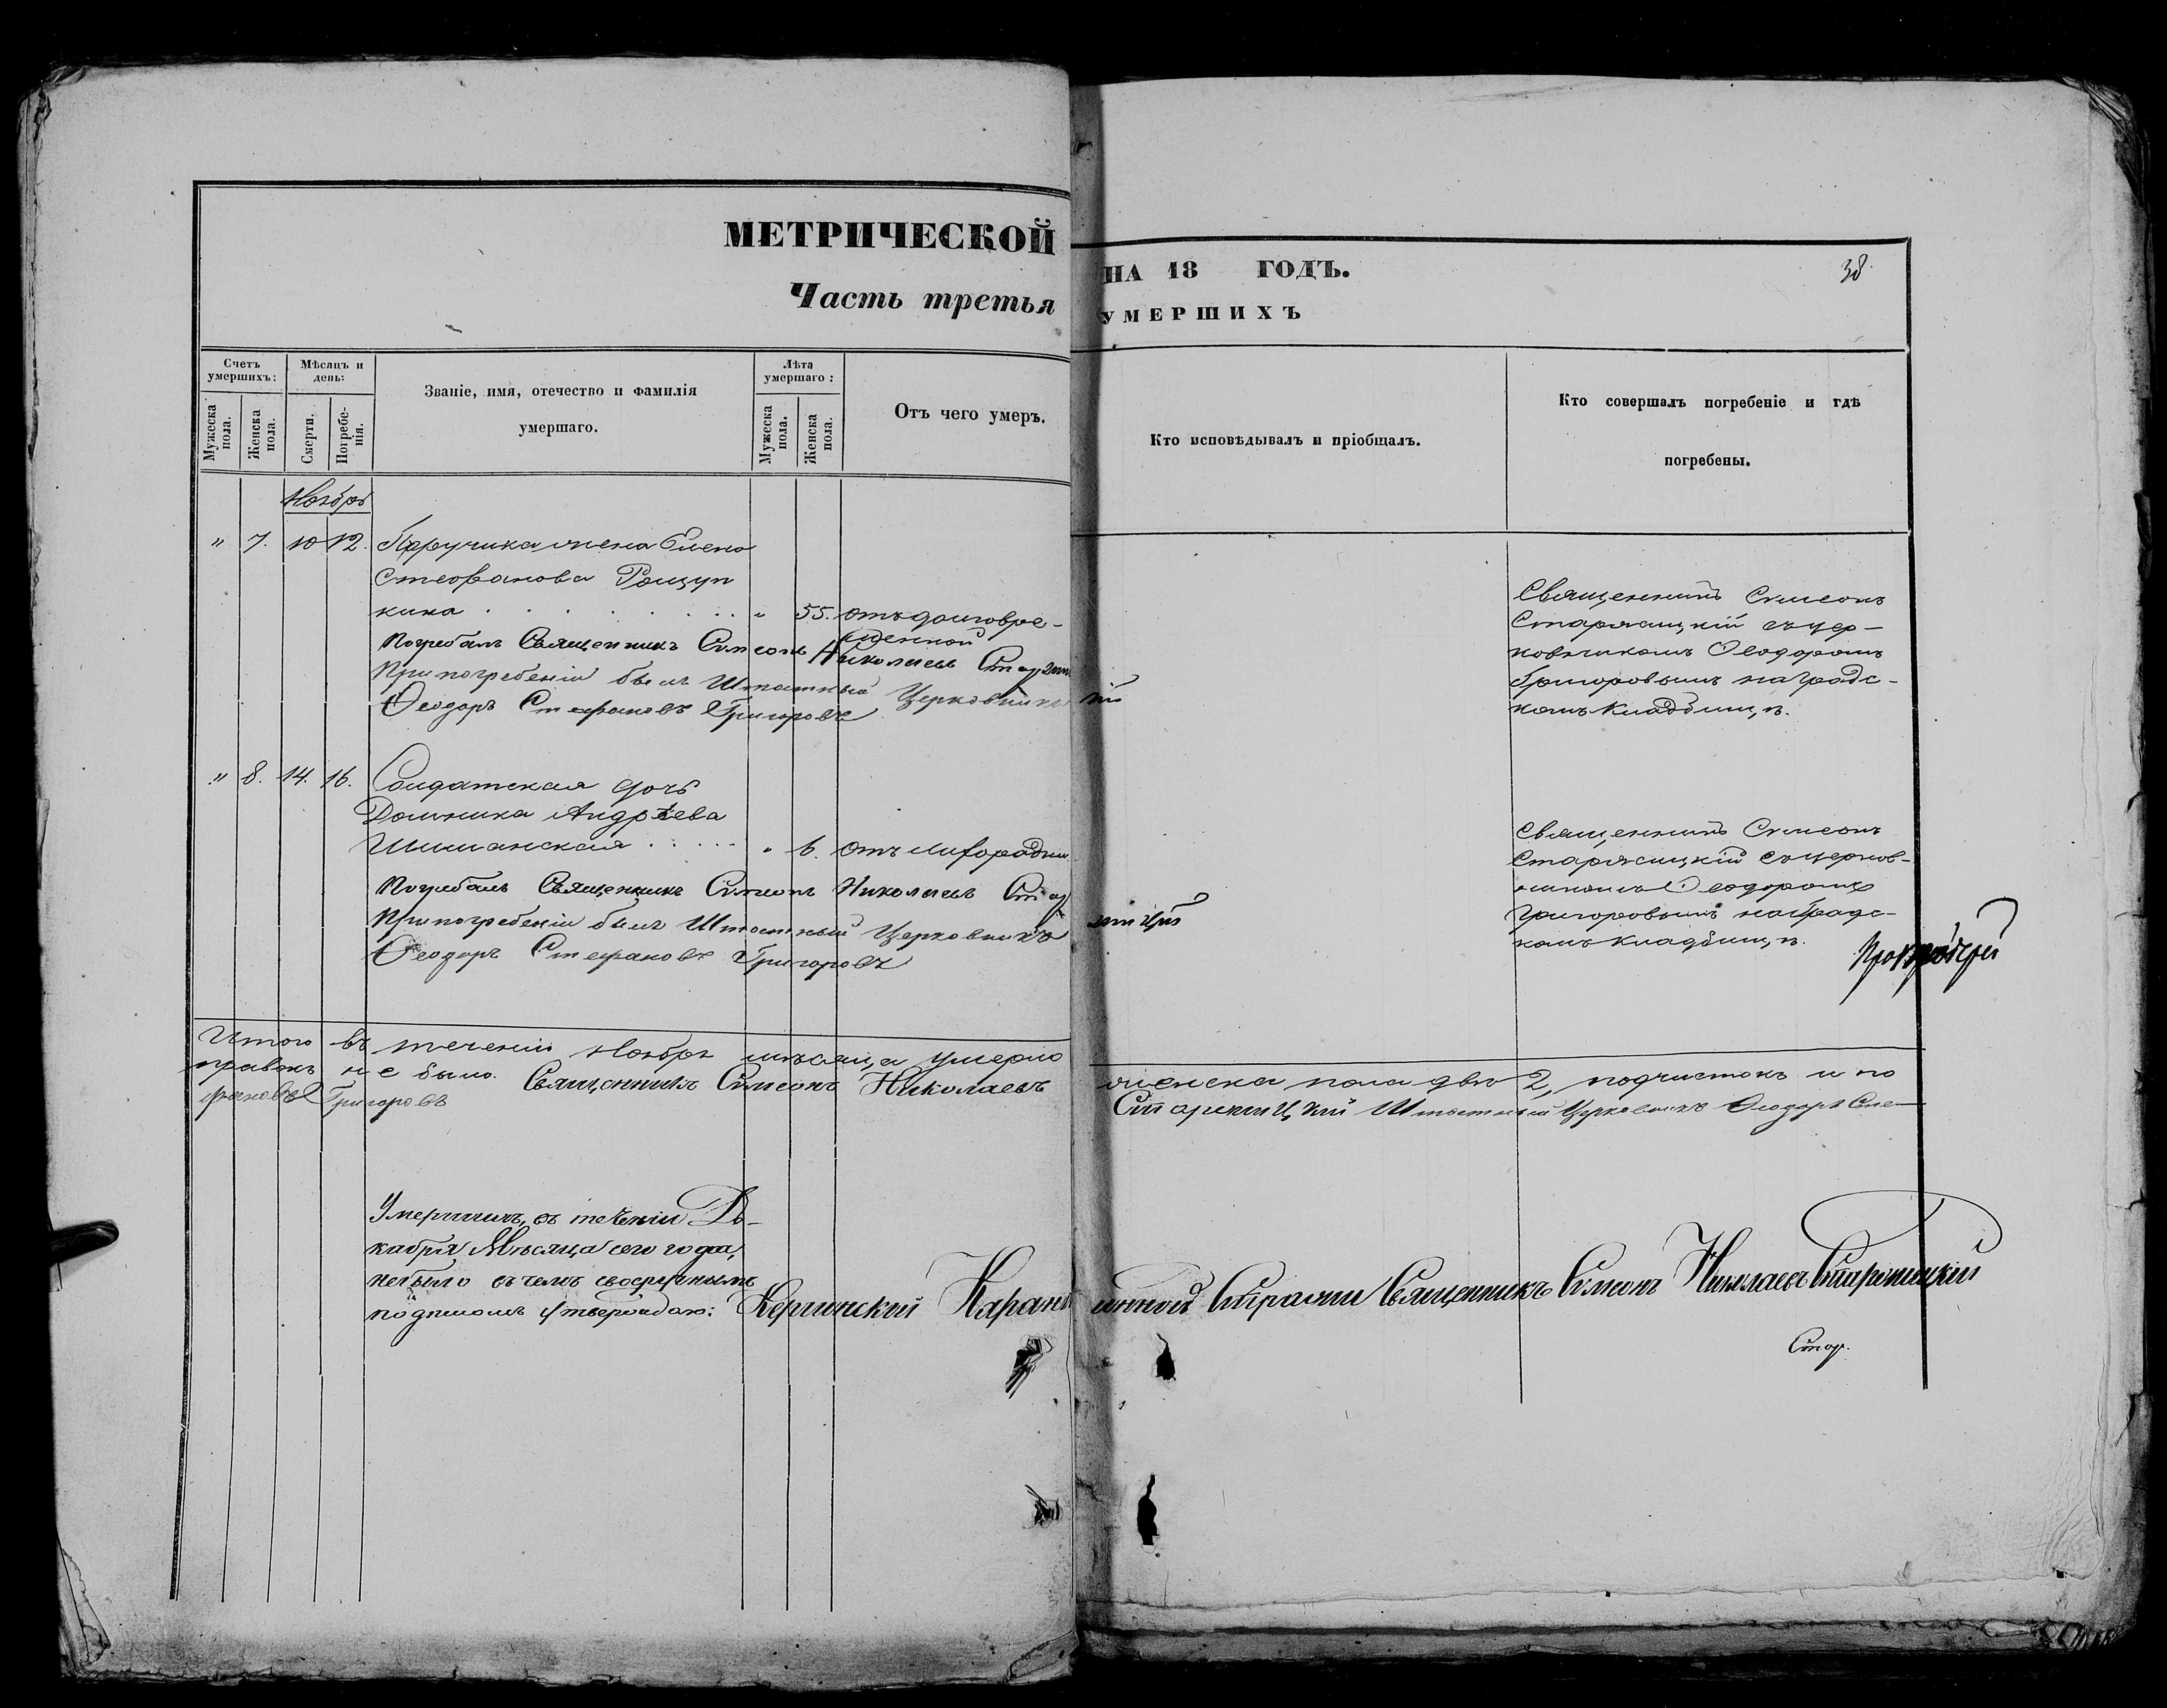 МЕТРИЧЕСКОЙ
Часть третья
НА 18 ГОДЪ.
УМЕРШИХЪ
38.
Счетъ умершихъ:
Мужеска пола.
Женска пола.
Мѣсяцъ и день:
Смерти.
Погребенія.
Званіе, имя, отечество и фамилія
умершаго.
Лѣта умершаго:
Мужеска пола.
Женска пола.
Отъ чего умеръ.
Кто исповѣдывалъ и пріобщалъ.
Кто совершалъ погребеніе и гдѣ
погребены.
Ноябрь
" 7. 10 12. Поручика жена Елена
Стефанова Рощуп
кина " 55. отъ долговре-
менной
Погребалъ Священникъ Симеонъ Николаевъ
При погребеніи былъ Штатный Церковникъ
Ѳеодоръ Стефановъ Григоровъ
Священникъ Симеонъ
Старжицкій съ цер-
ковникомъ Ѳеодоромъ
Григоровымъ на градс-
комъ кладбищѣ.
" 8. 14. 16. Солдатская дочь
Домника Андрѣева
Шиманская " 6. отъ лихорадки
Погребалъ Священникъ Симеонъ Николаевъ
При погребеніи былъ Штатный Церковникъ
Ѳеодоръ Стефановъ Григоровъ
Священникъ Симеонъ
Старжицкій съ церков-
никомъ Ѳеодоромъ
Григоровымъ на градс-
комъ кладбищѣ.
Итого въ теченіи Ноябрѣ мѣсяца умерло женска пола двѣ 2, подчистокъ и по
правокъ не было. Священникъ Симеонъ Николаевъ Старжицкій Штатный Церковникъ Ѳеодоръ Сте-
фановъ Григоровъ
Умершихъ, въ теченіи Де-
кабря Мѣсяца сего года,
небыло въ чемъ своеручнымъ
подписомъ утверждаю: Керчинской Карантинной Стражи Священникъ Симеонъ Николаевъ Старжицкій